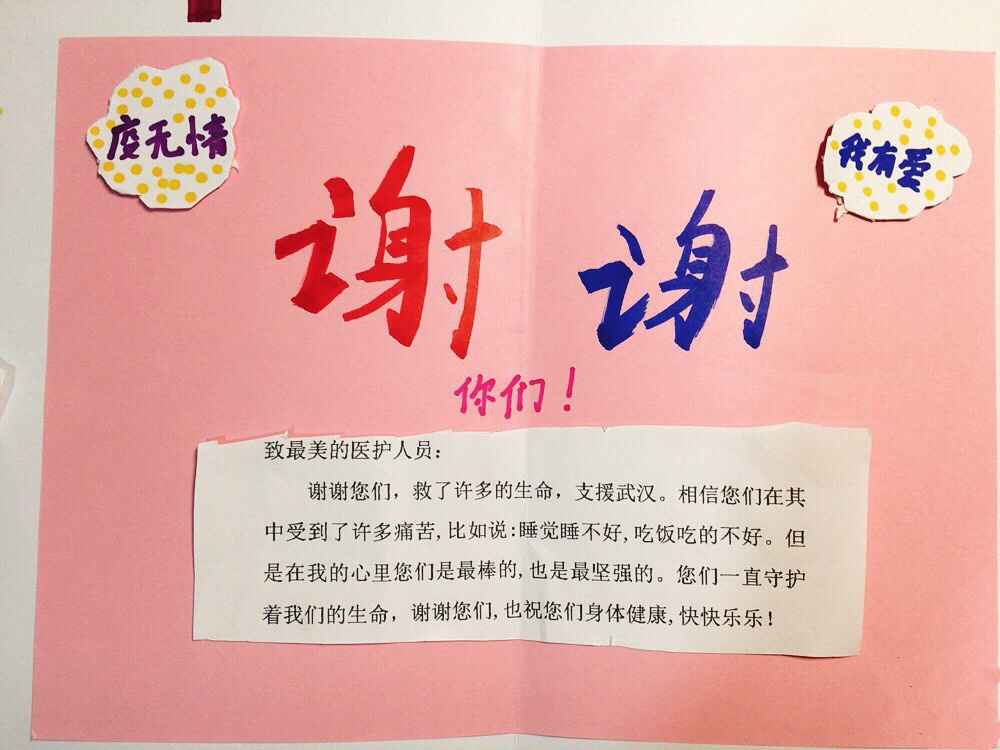 疫无情
我有爱
谢谢
你们！
致最美的医护人员：
谢谢您们，救了许多的生命，支援武汉。相信您们在其
中受到了许多痛苦,比如说:睡觉睡不好,吃饭吃的不好。但
是在我的心里您们是最棒的,也是最坚强的。您们一直守护
着我们的生命，谢谢您们,也祝您们身体健康,快快乐乐！